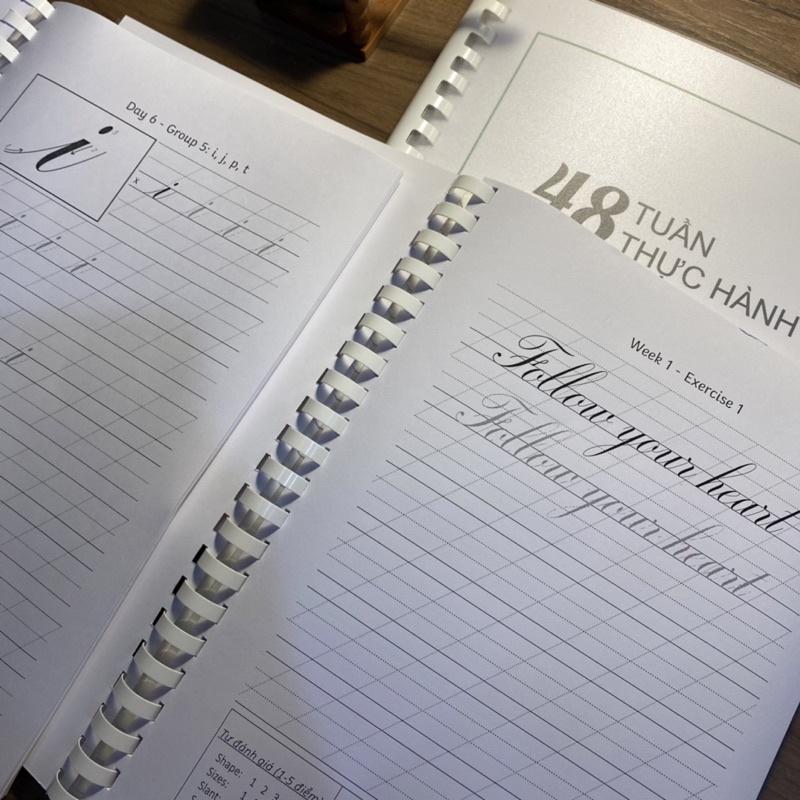 Day 6 - Group 5: i, j, p, t
i
x i i i i i
i i i i
i
48 TUẦN
THỰC HÀNH
Week 1 - Exercise 1
Follow your heart
Follow your heart
Tự đánh giá (1-5 điểm)
Shape: 1 2 3
Sizes: 1
Slant: